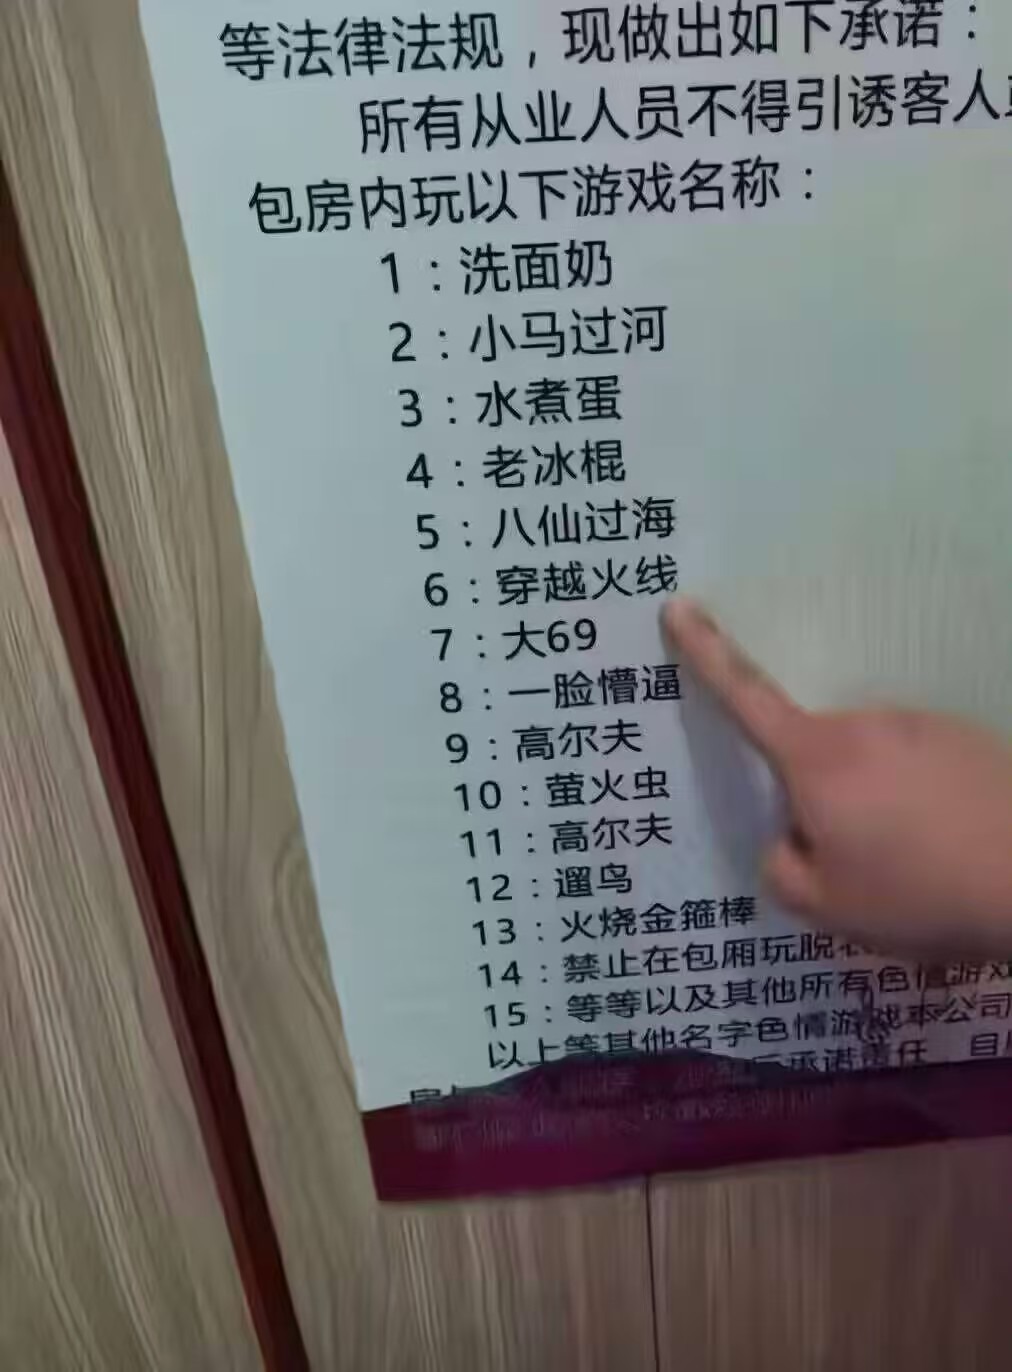 等法律法规，现做出如下承诺：
所有从业人员不得引诱客人
包房内玩以下游戏名称：
1：洗面奶
2：小马过河
3：水煮蛋
4：老冰棍
5：八仙过海
6：穿越火线
7：大69
8：一脸懵逼
9：高尔夫
10：萤火虫
11：高尔夫
12：遛鸟
13：火烧金箍棒
14：禁止在包厢玩脱
15：等等以及其他所有色情游戏
以上等其他名字色情游戏本公司
承诺责任，自